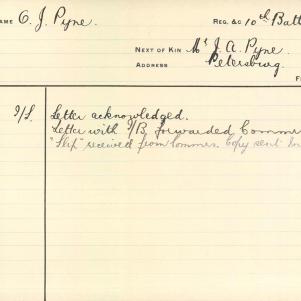 NAME C. J. Pyne
REG. &c 10th Batt
NEXT OF KIN Mr J. A. Pyne.
ADDRESS Petersburg.
Letter acknowledged.
Letter with forwarded
"Slip" received from Copy sent